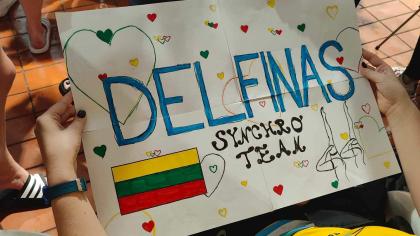 DELFINAS
SYNCHRO
TEAM